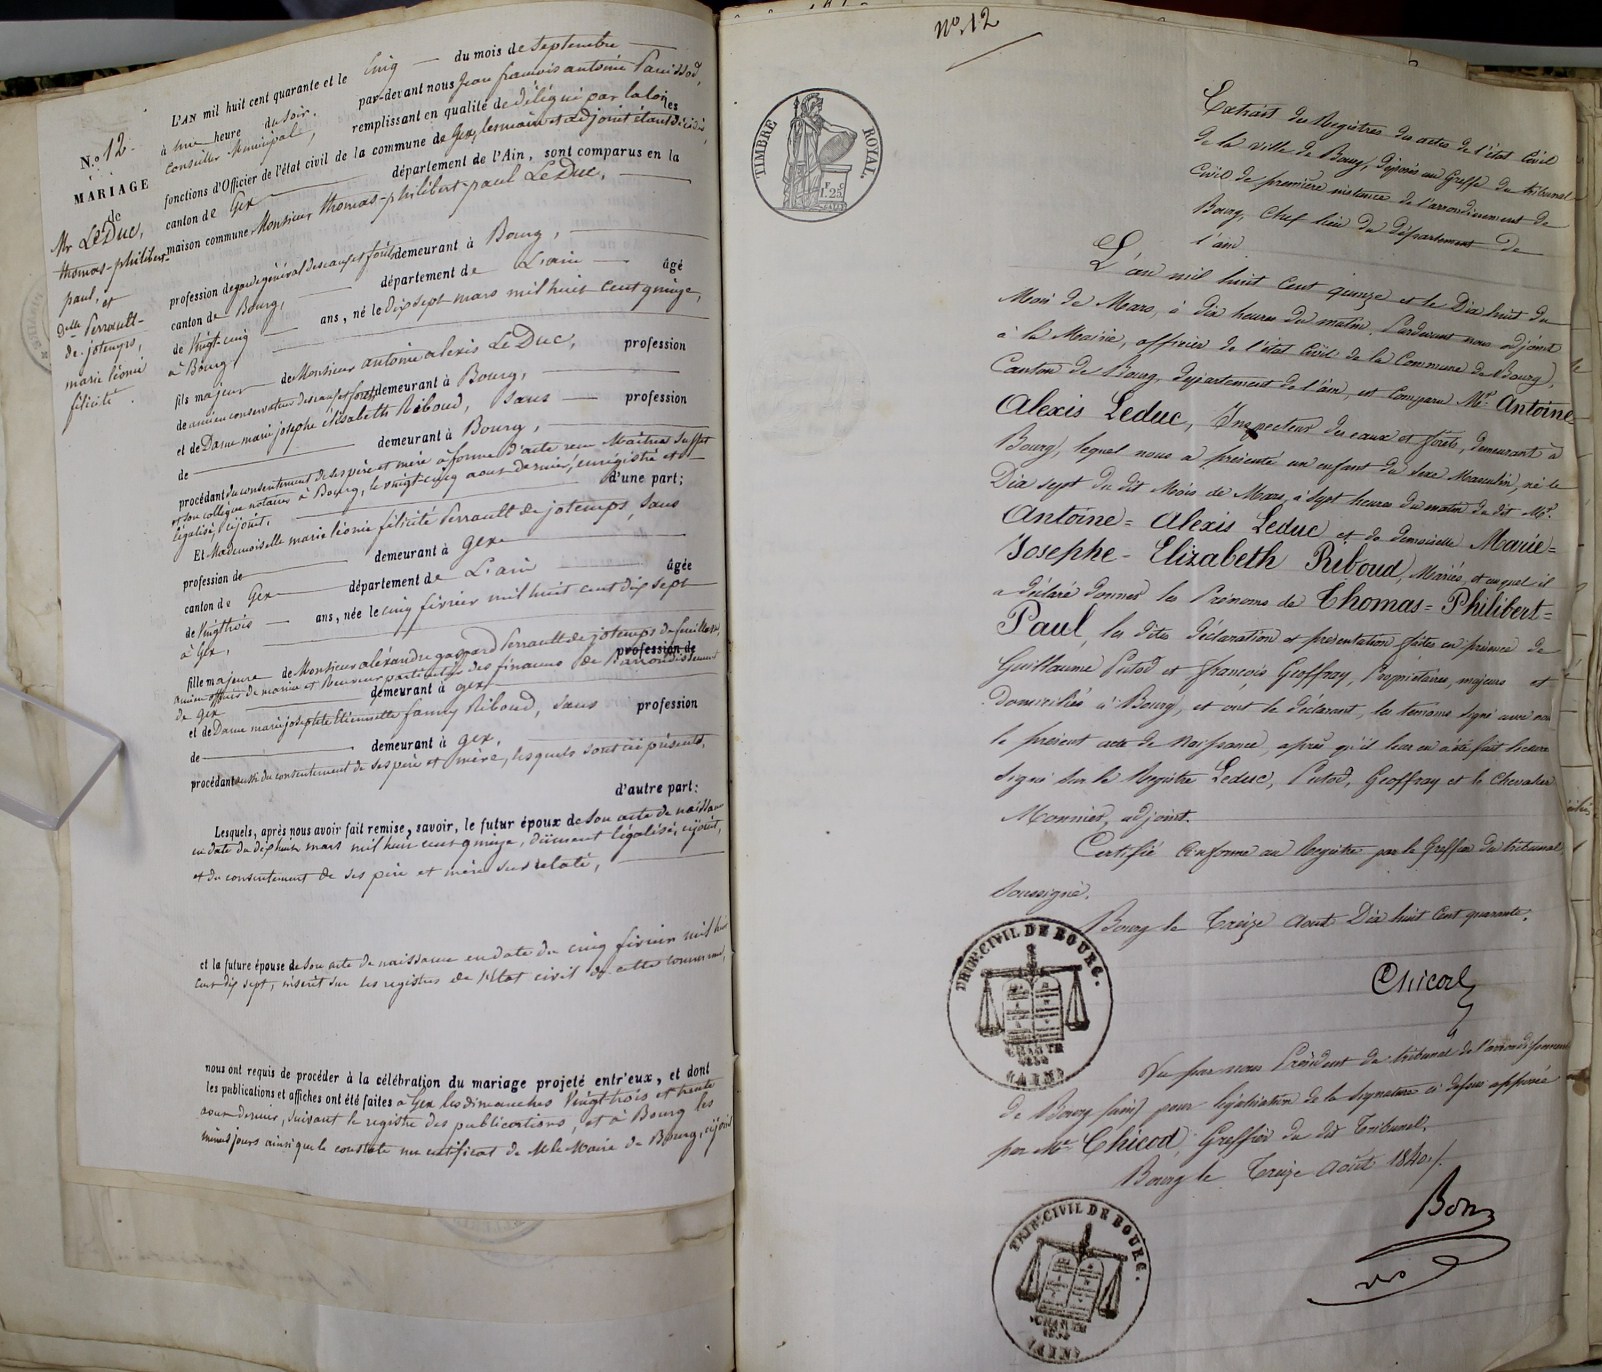 N.º 12.
MARIAGE
de
Mr LeDuc,
thomas-philibert-
paul,
et
Delle Perrault-
de-jotemps,
marie léonie
félicité.
L'AN mil huit cent quarante et le Cinq du mois de Septembre
à une heure du soir, par-devant nous Jean françois antoine Panissod,
Conseiller Municipal, remplissant en qualité de délégué par la loi les
fonctions d'Officier de l'état civil de la commune de Gex, les maire et adjoint étant
canton de Gex département de l'Ain, sont comparus en la
maison commune Monsieur thomas-philibert-paul LeDuc,
profession de garde général des eaux et forêts demeurant à Bourg,
canton de Bourg, département de L'ain âgé
de Vingt-cinq ans, né le dix sept mars mil huit cent quinze,
à Bourg
fils majeur de Monsieur antoine alexis LeDuc, profession
de ancien conservateur des eaux et forêts demeurant à Bourg,
et de Dame marie josephe élisabeth Riboud, sans profession
de demeurant à Bourg,
procédant du consentement de ses père et mère à forme d'acte reçu Maître
et son collègue notaires à Bourg, le vingt-cinq aout dernier, enregistré et
légalisé, cijoint, d'une part;
Et Mademoiselle marie léonie félicité Perrault de jotemps, sans
profession de demeurant à Gex
canton de Gex département de L'ain âgée
de Vingt trois ans, née le cinq février mil huit cent dix sept
à Gex,
fille majeure de Monsieur aléxandre gaspard Perrault de jotemps de feuillasse,
ancien officier de marine et Receveur particulier des finances de L'arrondissement profession de
de Gex demeurant à gex
et de Dame marie josephte Etiennette fanny Riboud, sans profession
de demeurant à gex,
procédant aussi du consentement de ses père et mère, lesquels sont ici présents,
d'autre part:
Lesquels, après nous avoir fait remise, savoir, le futur époux de Son acte de naissance
en date du dix huit mars mil huit cent quinze, dûment légalisé, cijoint,
et du consentement de ses père et mère susrelaté,
et la future épouse de Son acte de naissance en date du cinq février mil huit
cent dix sept, inscrit sur les registres de l'état civil de cette commune,
nous ont requis de procéder à la célébration du mariage projeté entr'eux, et dont
les publications et affiches ont été faites à Gex les dimanches Vingt trois et trente
aout dernier, suivant le registre des publications, et à Bourg les
mêmes jours ainsi que le constate un certificat de Mr le Maire de Bourg, cijoint
Nº 12
TIMBRE ROYAL.
1F 25C
Extrait des Registres des actes de l'état Civil
de la ville de Bourg, déposés au Greffe du tribunal
Civil de première instance de l'arrondissement de
Bourg, Chef lieu du département de
l'ain
L'an mil huit Cent quinze et le Dix huit du
Mois de Mars, à dix heures du matin, Pardevant nous adjoint
à la Mairie, officier de l'état Civil de la Commune de Bourg,
Canton de Bourg, département de l'ain, est Comparu Mr. Antoine-
Alexis Leduc, Inspecteur des eaux et forêts, demeurant à
Bourg, lequel nous a présenté un enfant du sexe Masculin, né le
Dix sept du dit Mois de Mars, à sept heures du matin du dit Mr.
Antoine-Alexis Leduc et de demoiselle Marie-
Josephe-Elizabeth Riboud, Mariés, et auquel il
a déclaré donner les Prénoms de Thomas-Philibert-
Paul, les dites déclaration et présentation faites en présence de
Guillaume Putod et françois Geoffray, Propriétaires, majeurs et
Domiciliés à Bourg, et ont le déclarant, les témoins signé avec nous
le présent acte de Naissance, après qu'il leur en a été fait lecture
Signé Sur le Registre Leduc, Putod, Geoffray et le Chevalier
Monnier, adjoint.
Certifié Conforme au Registre par le Greffier du tribunal
Soussigné.
Bourg le Treize Aout Dix huit Cent quarante.
TRIB. CIVIL DE BOURG.
CHARTE
1830
(AIN)
Chicod
Vu par nous Président du tribunal de l'arrondissement
de Bourg (ain) pour légalisation de la Signature ci dessus apposée
par Mr. Chicod, Greffier du dit Tribunal.
Bourg le Treize Août 1840./.
Bon
TRIB. CIVIL DE BOURG.
CHARTE
1830
(AIN)